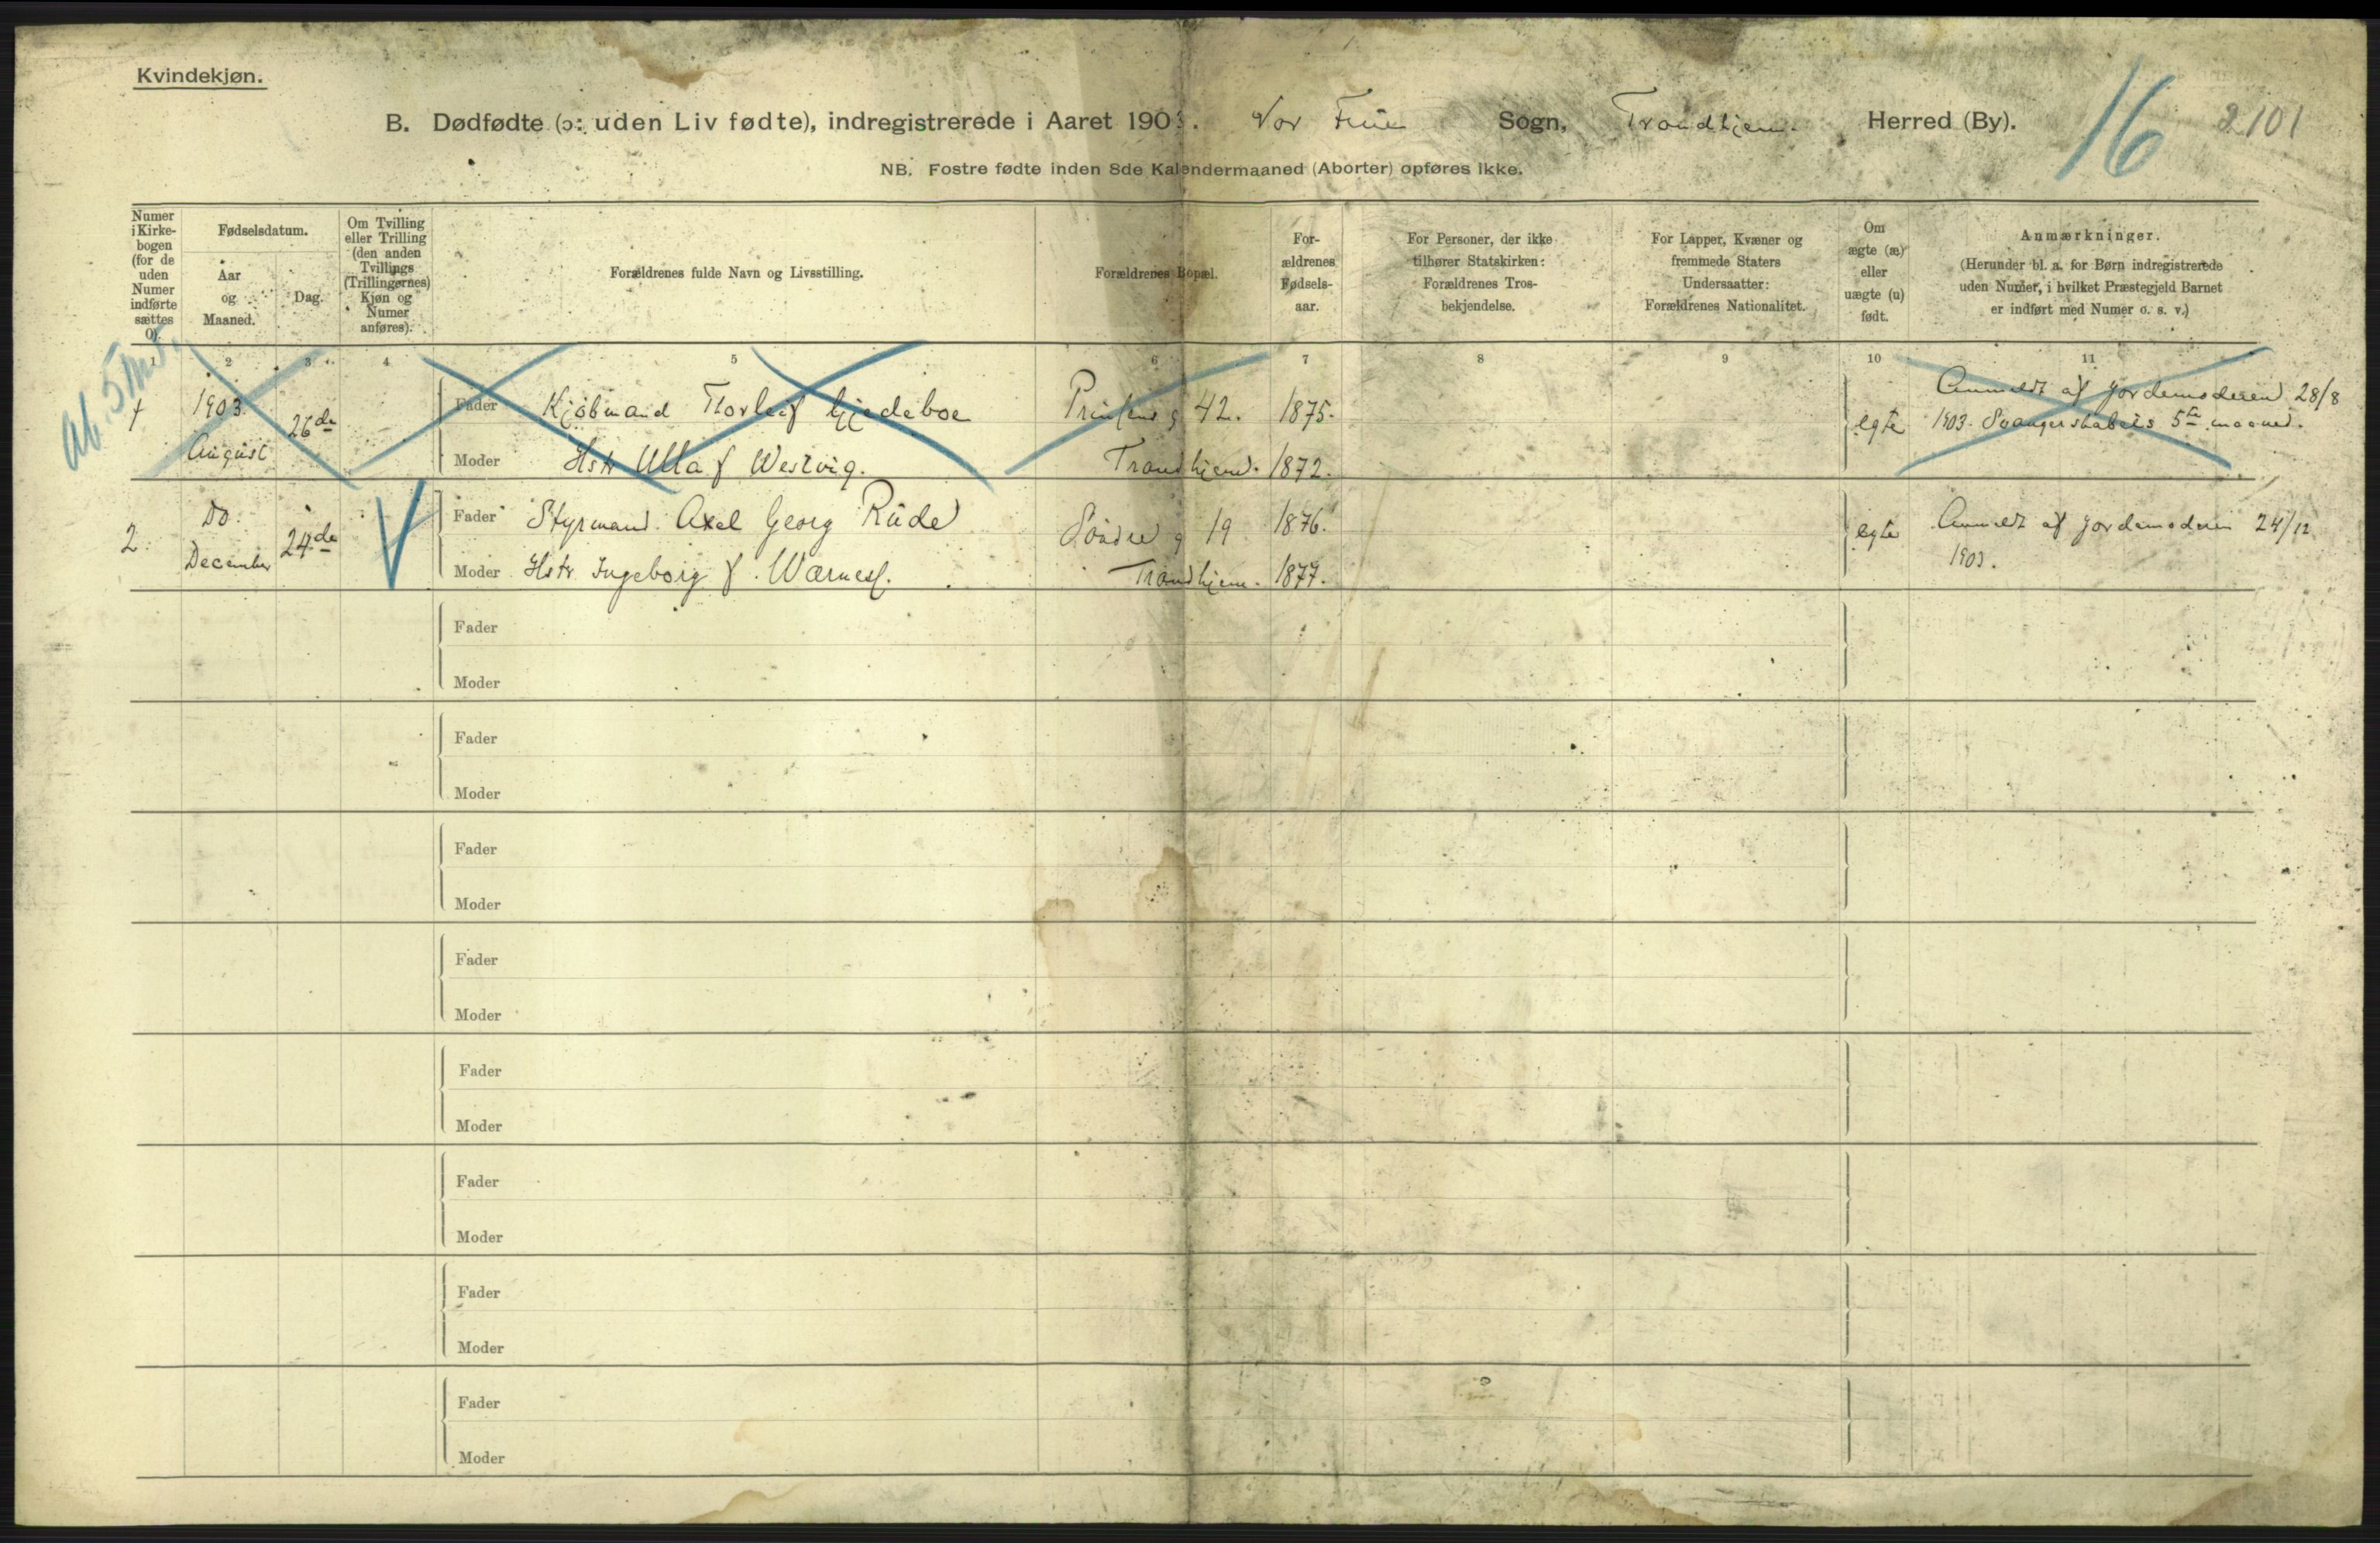 Kvindekjøn.
B. Dødfødte (ɔ: uden Liv fødte), indregistrerede i Aaret 1903. Vor Frue Sogn, Trondhjem. Herred (By).
16
2101
NB. Fostre fødte inden 8de Kalendermaaned (Aborter) opføres ikke.
Numer i Kirke-bogen (for de uden Numer indførte sættes 0).
Fødselsdatum.
Aar og Maaned.
Dag.
Om Tvilling eller Trilling (den anden Tvillings (Trillingernes) Kjøn og Numer anføres).
Forældrenes fulde Navn og Livsstilling.
Forældrenes Bopæl.
For-ældrenes Fødsels-aar.
For Personer, der ikke tilhører Statskirken: Forældrenes Tros-bekjendelse.
For Lapper, Kvæner og fremmede Staters Undersaatter: Forældrenes Nationalitet.
Om ægte (æ) eller uægte (u) født.
Anmærkninger.
(Herunder bl. a. for Børn indregistrerede uden Numer, i hvilket Præstegjeld Barnet er indført med Numer o. s. v.)
1 2 3 4 5 6 7 8 9 10 11
Ab. 5 Md.
1 1903. August 26de
Fader Kjøbmand Thorleif Gjedeboe Prinsens g 42. 1875.
Moder Hstr Ulla f Westvig. Trondhjem. 1872.
egte Anmeldt af Jordemoderen 28/8
1903. Svangerskabets 5te maaned.
2. Do. December 24de
Fader Styrmand Axel Georg Rude Søndre g 19 1876.
Moder Hstr. Ingeborg f. Wærnes. Trondhjem. 1877.
egte Anmeldt af Jordemoderen 24/12
1903.
Fader
Moder
Fader
Moder
Fader
Moder
Fader
Moder
Fader
Moder
Fader
Moder
Fader
Moder
Fader
Moder